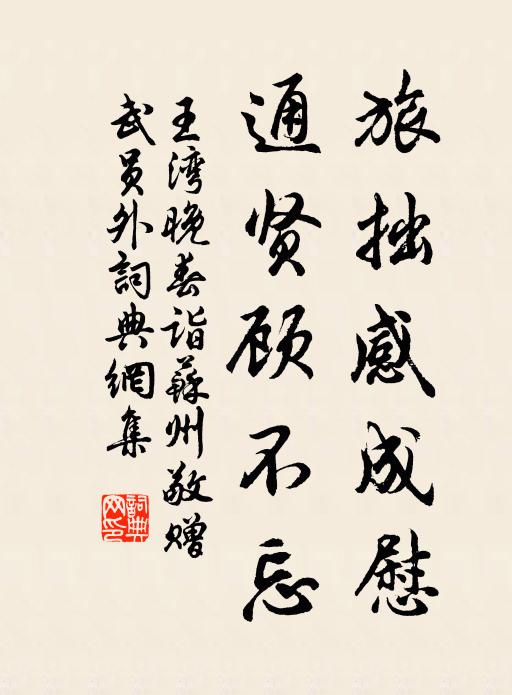 旅拙感成慰
通贤顾不忘
王湾晚春诣蘇州敬赠
武员外詞典網集
詞典网印